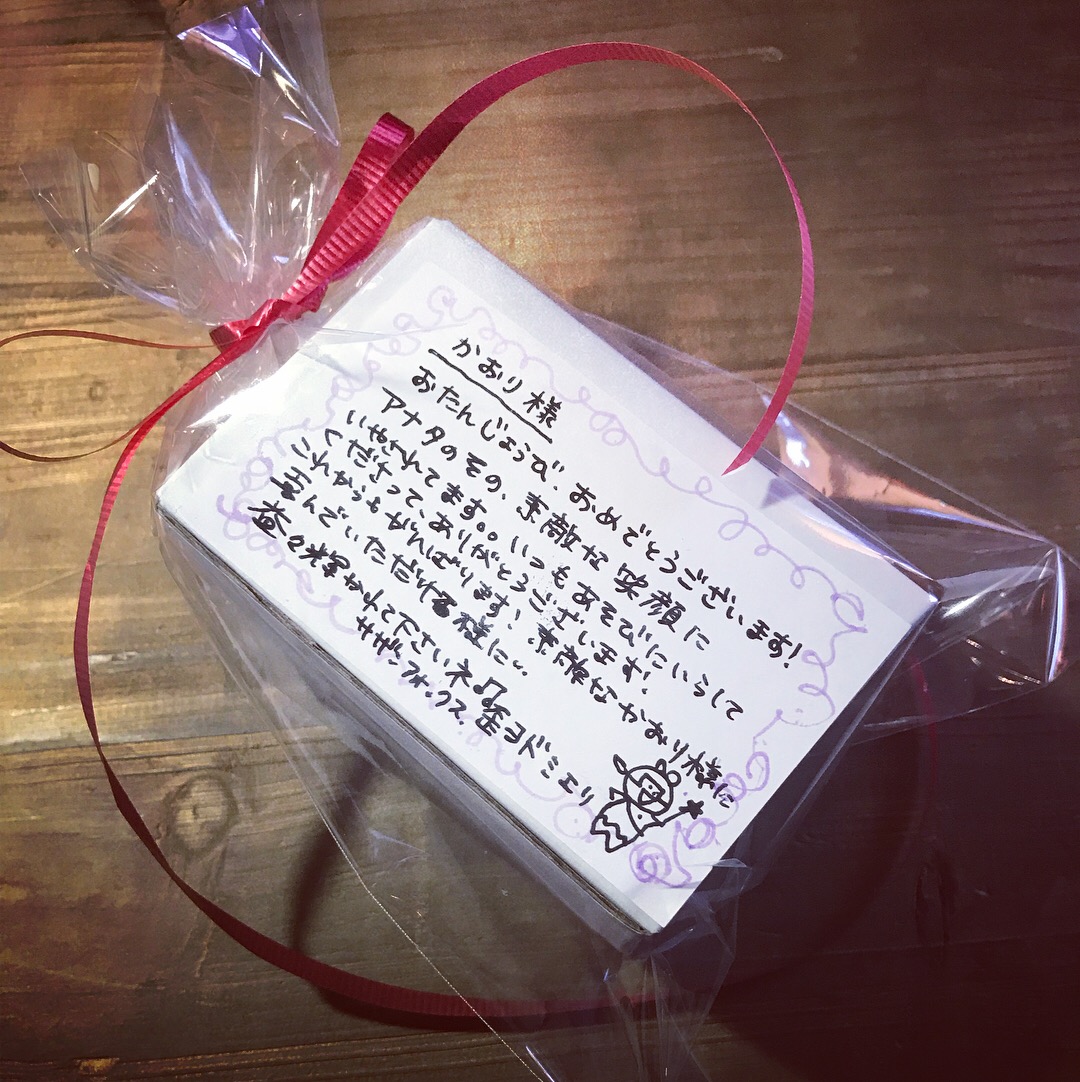 かおり様
おたんじょうび、おめでとうございます!
アナタのその、素敵な笑顔に
いやされてます。いつもあそびにいらして
くださって、ありがとうございます!
これからもがんばります!素敵なかおり様に
喜んでいただける様に…
益々輝かれて下さいネ♫
サザンフォックス 淀ヨドミエリ